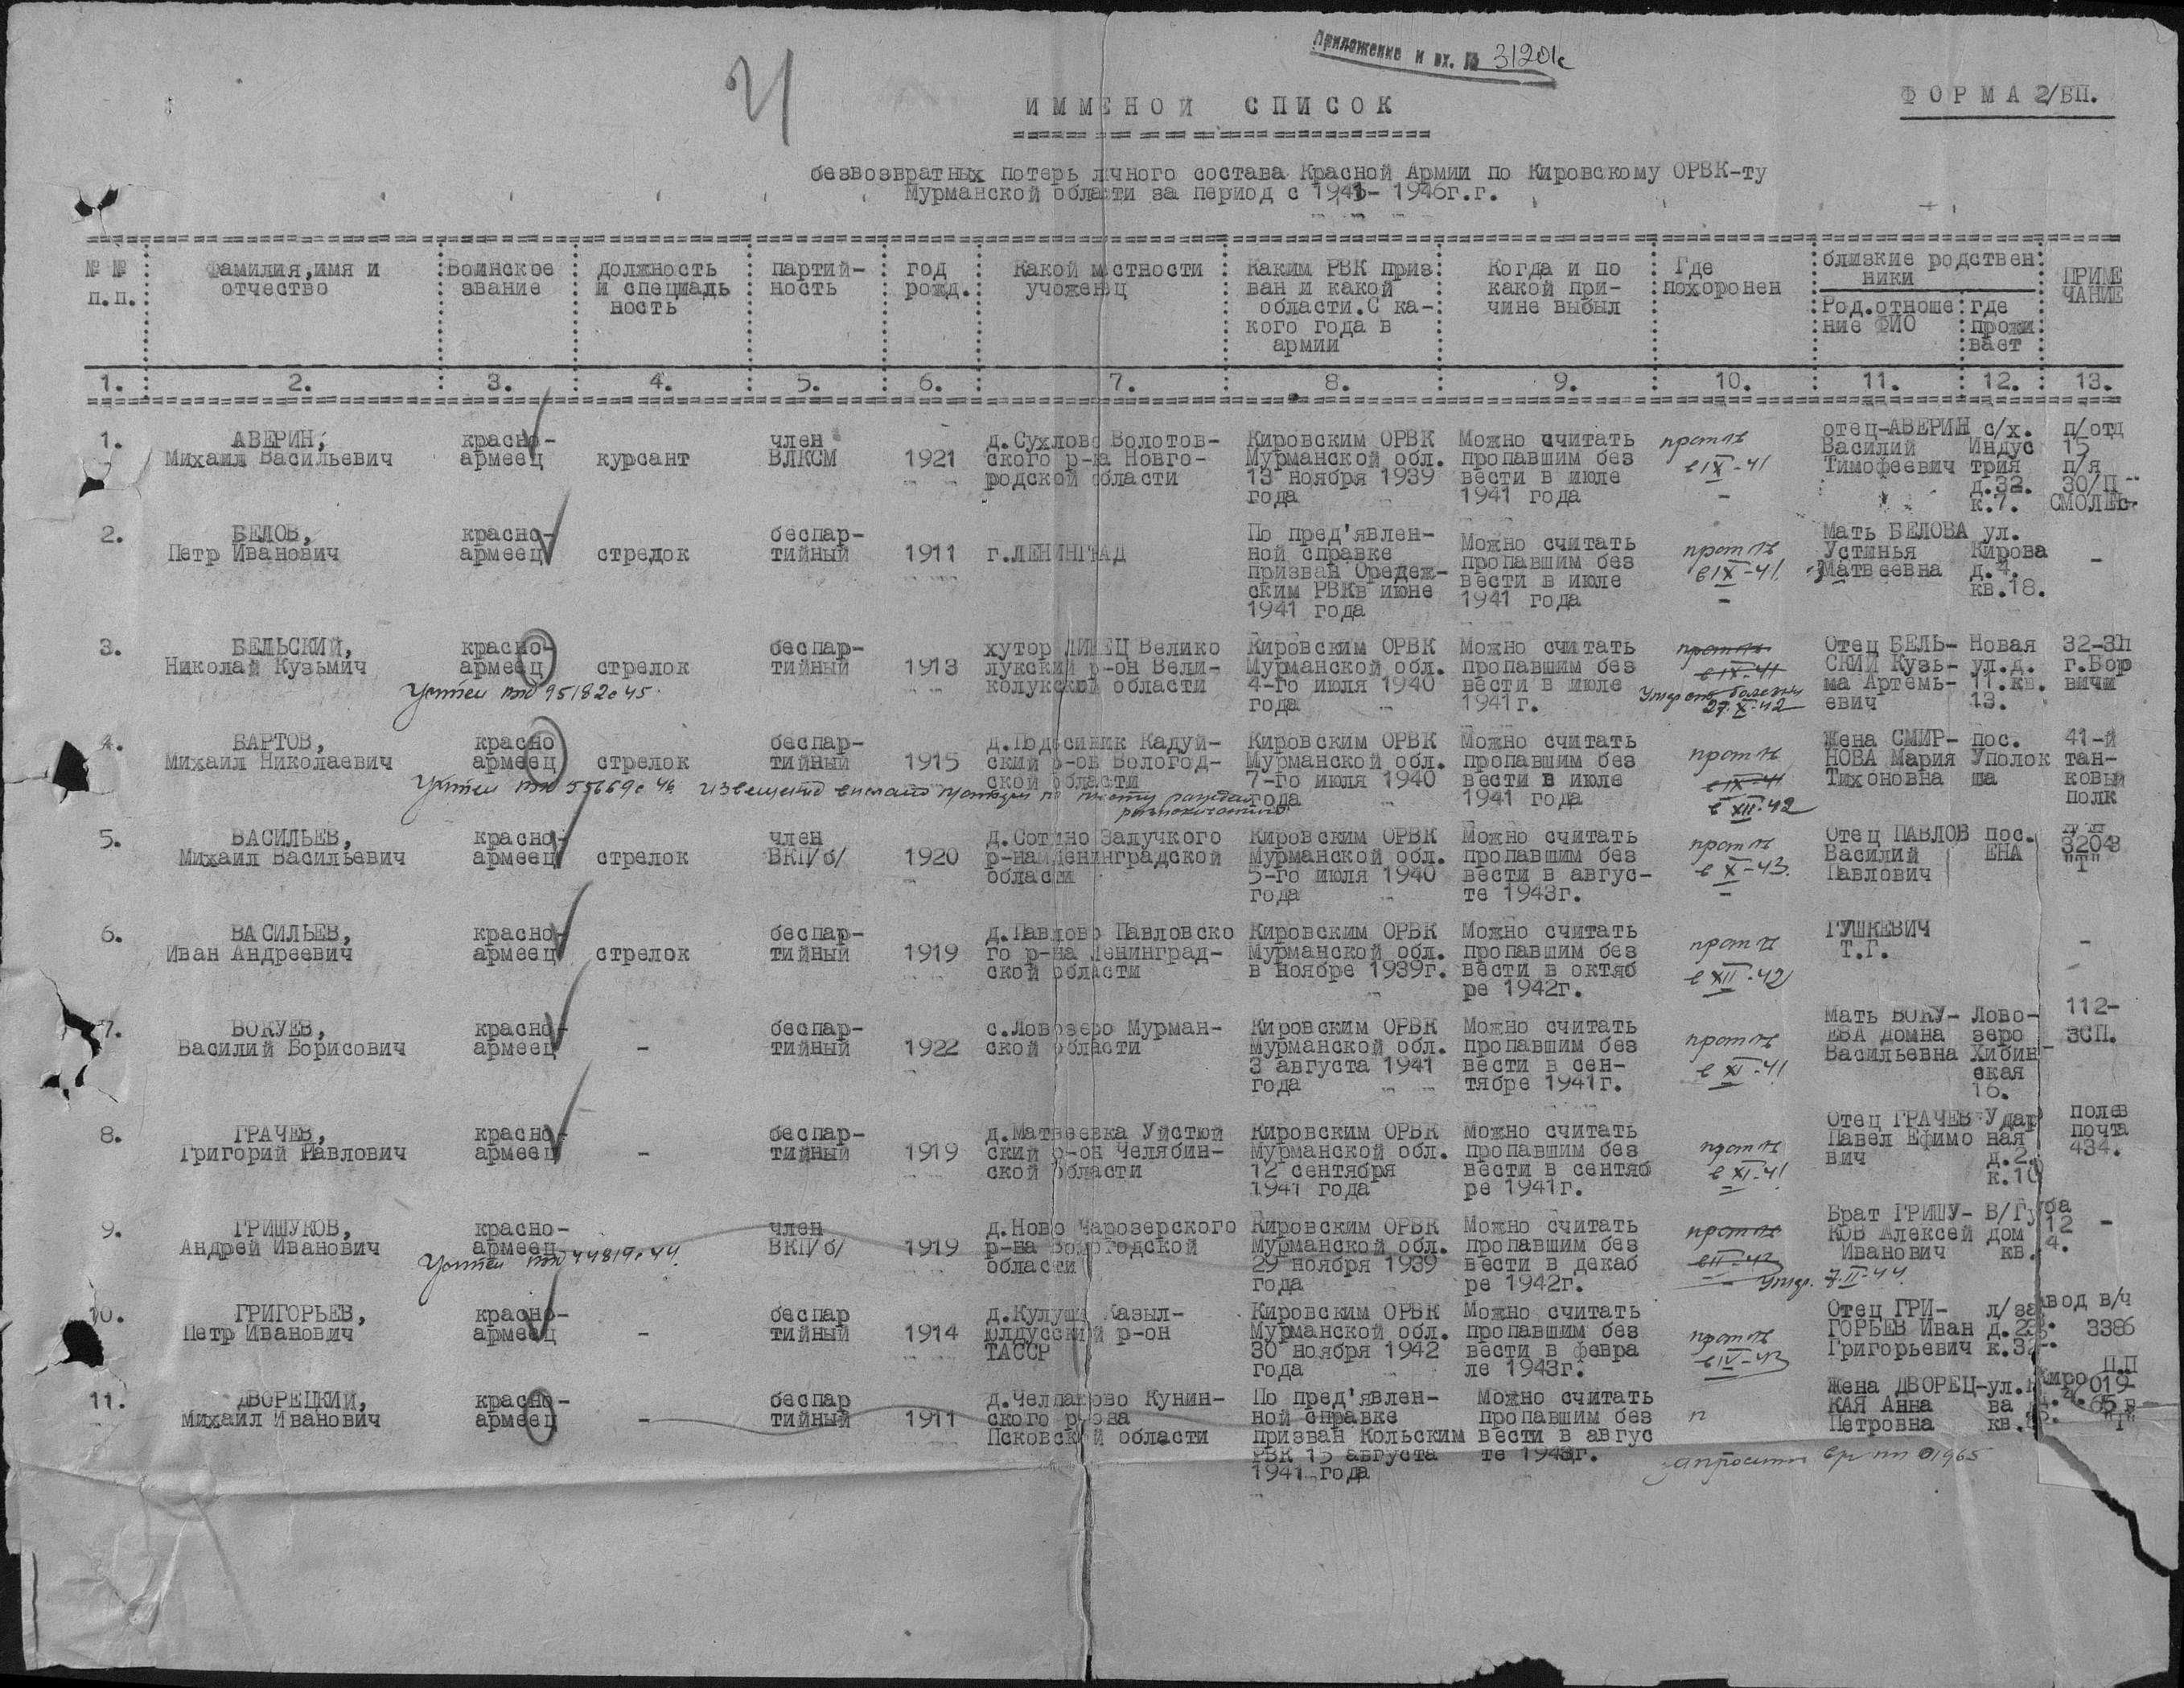 Приложение к вх. № 31201с
Ф О Р М А 2/БП.
И М М Е Н О Й С П И С О К
безвозвратных потерь лчного состава Красной Армии по Кировскому ОРВК-ту
Мурманской области за период с 1941- 1946г.г.
№ № п.п.
Фамилия,имя и отчество
Воинское звание
должность и специадь ность
партий- ность
год рожд.
Какой мстности учоженец
Каким РВК приз ван и какой области.С ка- кого года в армии
Когда и по какой при- чине выбыл
Где похоронен
близкие родствен ники
Род.отноше ние ФИО
где прожи вает
ПРИМЕ ЧАНИЕ
1. 2. 3. 4. 5. 6. 7. 8. 9. 10. 11. 12. 13.
1.
АВЕРИН,
Михаил Васильевич
красно-
армеец
курсант
член
ВЛКСМ
1921
д.Сухлово Волотов-
ского р-на Новго-
родской области
Кировским ОРВК
Мурманской обл.
13 ноября 1939
года
Можно считать
пропавшим без
вести в июле
1941 года
в IX-41
отец-АВЕРИН
Василий
Тимофеевич
с/х.
Индус
трия
д.32.
к.7.
п/отд
15
п/я
30/П
СМОЛЕН-
2.
БЕЛОВ,
Петр Иванович
красно-
армеец
стрелок
беспар-
тийный
1911
г.ЛЕНИНГРАД
По пред'явлен-
ной справке
призван Оредеж-
ским РВКв июне
1941 года
Можно считать
пропавшим без
вести в июле
1941 года
в IX-41
Мать БЕЛОВА
Устинья
Матвеевна
ул.
Кирова
д.4.
кв.18.
-
3.
БЕЛЬСКИЙ,
Николай Кузьмич
красно-
армеец
стрелок
беспар-
тийный
1913
хутор ДИНЕЦ Велико
лукский р-он Вели-
колукской области
Кировским ОРВК
Мурманской обл.
4-го июля 1940
года
Можно считать
пропавшим без
вести в июле
1941г.
в IX-41
Умер от болезни
27.X.42
Отец БЕЛЬ-
СКИЙ Кузь-
ма Артемь-
евич
Новая
ул.д.
11.кв.
13.
32-ЗП
г.Бор
вичи
Учтен вх 95182с 45.
4.
ВАРТОВ,
Михаил Николаевич
красно
армеец
стрелок
беспар-
тийный
1915
д.Подсиник Кадуй-
ский р-он Вологод-
ской области
Кировским ОРВК
Мурманской обл.
7-го июля 1940
года
Можно считать
пропавшим без
вести в июле
1941 года
в IX-41
в XII-42
Жена СМИР-
НОВА Мария
Тихоновна
пос.
Уполок
ша
41-й
тан-
ковый
полк
Учтен вх 55669с 46 извещение
5.
ВАСИЛЬЕВ,
Михаил Васильевич
красно-
армеец
стрелок
член
ВКП/б/
1920
д.Сотино Залучкого
р-на Ленинградской
области
Кировским ОРВК
Мурманской обл.
5-го июля 1940
года
Можно считать
пропавшим без
вести в авгус-
те 1943г.
в X-43.
Отец ПАВЛОВ
Василий
Павлович
пос.
ЕНА
п/п
32043
"Т"
6.
ВАСИЛЬЕВ,
Иван Андреевич
красно-
армеец
стрелок
беспар-
тийный
1919
д.Павлово Павловско
го р-на Ленинград-
ской области
Кировским ОРВК
Мурманской обл.
в ноябре 1939г.
Можно считать
пропавшим без
вести в октяб
ре 1942г.
в XII-42
ГУШКЕВИЧ
Т.Г.
-
7.
ВОКУЕВ,
Василий Борисович
красно-
армеец
-
беспар-
тийный
1922
с.Ловозеро Мурман-
ской области
Кировским ОРВК
Мурманской обл.
3 августа 1941
года
Можно считать
пропавшим без
вести в сен-
тябре 1941г.
в XI-41
Мать ВОКУ-
ЕВА Домна
Васильевна
Лово-
зеро
Хибин-
ская
16.
112-
ЗСП.
8.
ГРАЧЕВ,
Григорий Павлович
красно-
армеец
-
беспар-
тийный
1919
д.Матвеевка Уйстюй
ский р-он Челябин-
ской области
Кировским ОРВК
Мурманской обл.
12 сентября
1941 года
Можно считать
пропавшим без
вести в сентяб
ре 1941г.
в XI-41
Отец ГРАЧЕВ
Павел Ефимо
вич
Удар
ная
д.2.
к.10
полев
почта
434.
9.
ГРИШУКОВ,
Андрей Иванович
красно-
армеец
член
ВКП/б/
1919
д.Ново Чарозерского
р-на Вологодской
области
Кировским ОРВК
Мурманской обл.
29 ноября 1939
года
Можно считать
пропавшим без
вести в декаб
ре 1942г.
в II-43
Умер. 7.II-44
Брат ГРИШУ-
КОВ Алексей
Иванович
В/Губа
дом 12
кв.4.
-
Учтен вх 44819с 44.
10.
ГРИГОРЬЕВ,
Петр Иванович
красно-
армеец
-
беспар
тийный
1914
д.Кулуши Казыл-
юлдусский р-он
ТАССР
Кировским ОРВК
Мурманской обл.
30 ноября 1942
года
Можно считать
пропавшим без
вести в февра
ле 1943г.
в IV-43
Отец ГРИ-
ГОРЬЕВ Иван
Григорьевич
л/завод
в/ч
3386
11.
ДВОРЕЦКИЙ,
Михаил Иванович
красно-
армеец
-
беспар
тийный
1911
д.Челпагово Кунин-
ского р-она
Псковской области
По пред'явлен-
ной справке
призван Кольским
РВК 15 августа
1941 года
Можно считать
пропавшим без
вести в авгус
те 1943г.
п
Жена ДВОРЕЦ-
КАЯ Анна
Петровна
ул.Киро
ва
кв.
П.П
019
65 в
"Т"
запросить вр пп 01965